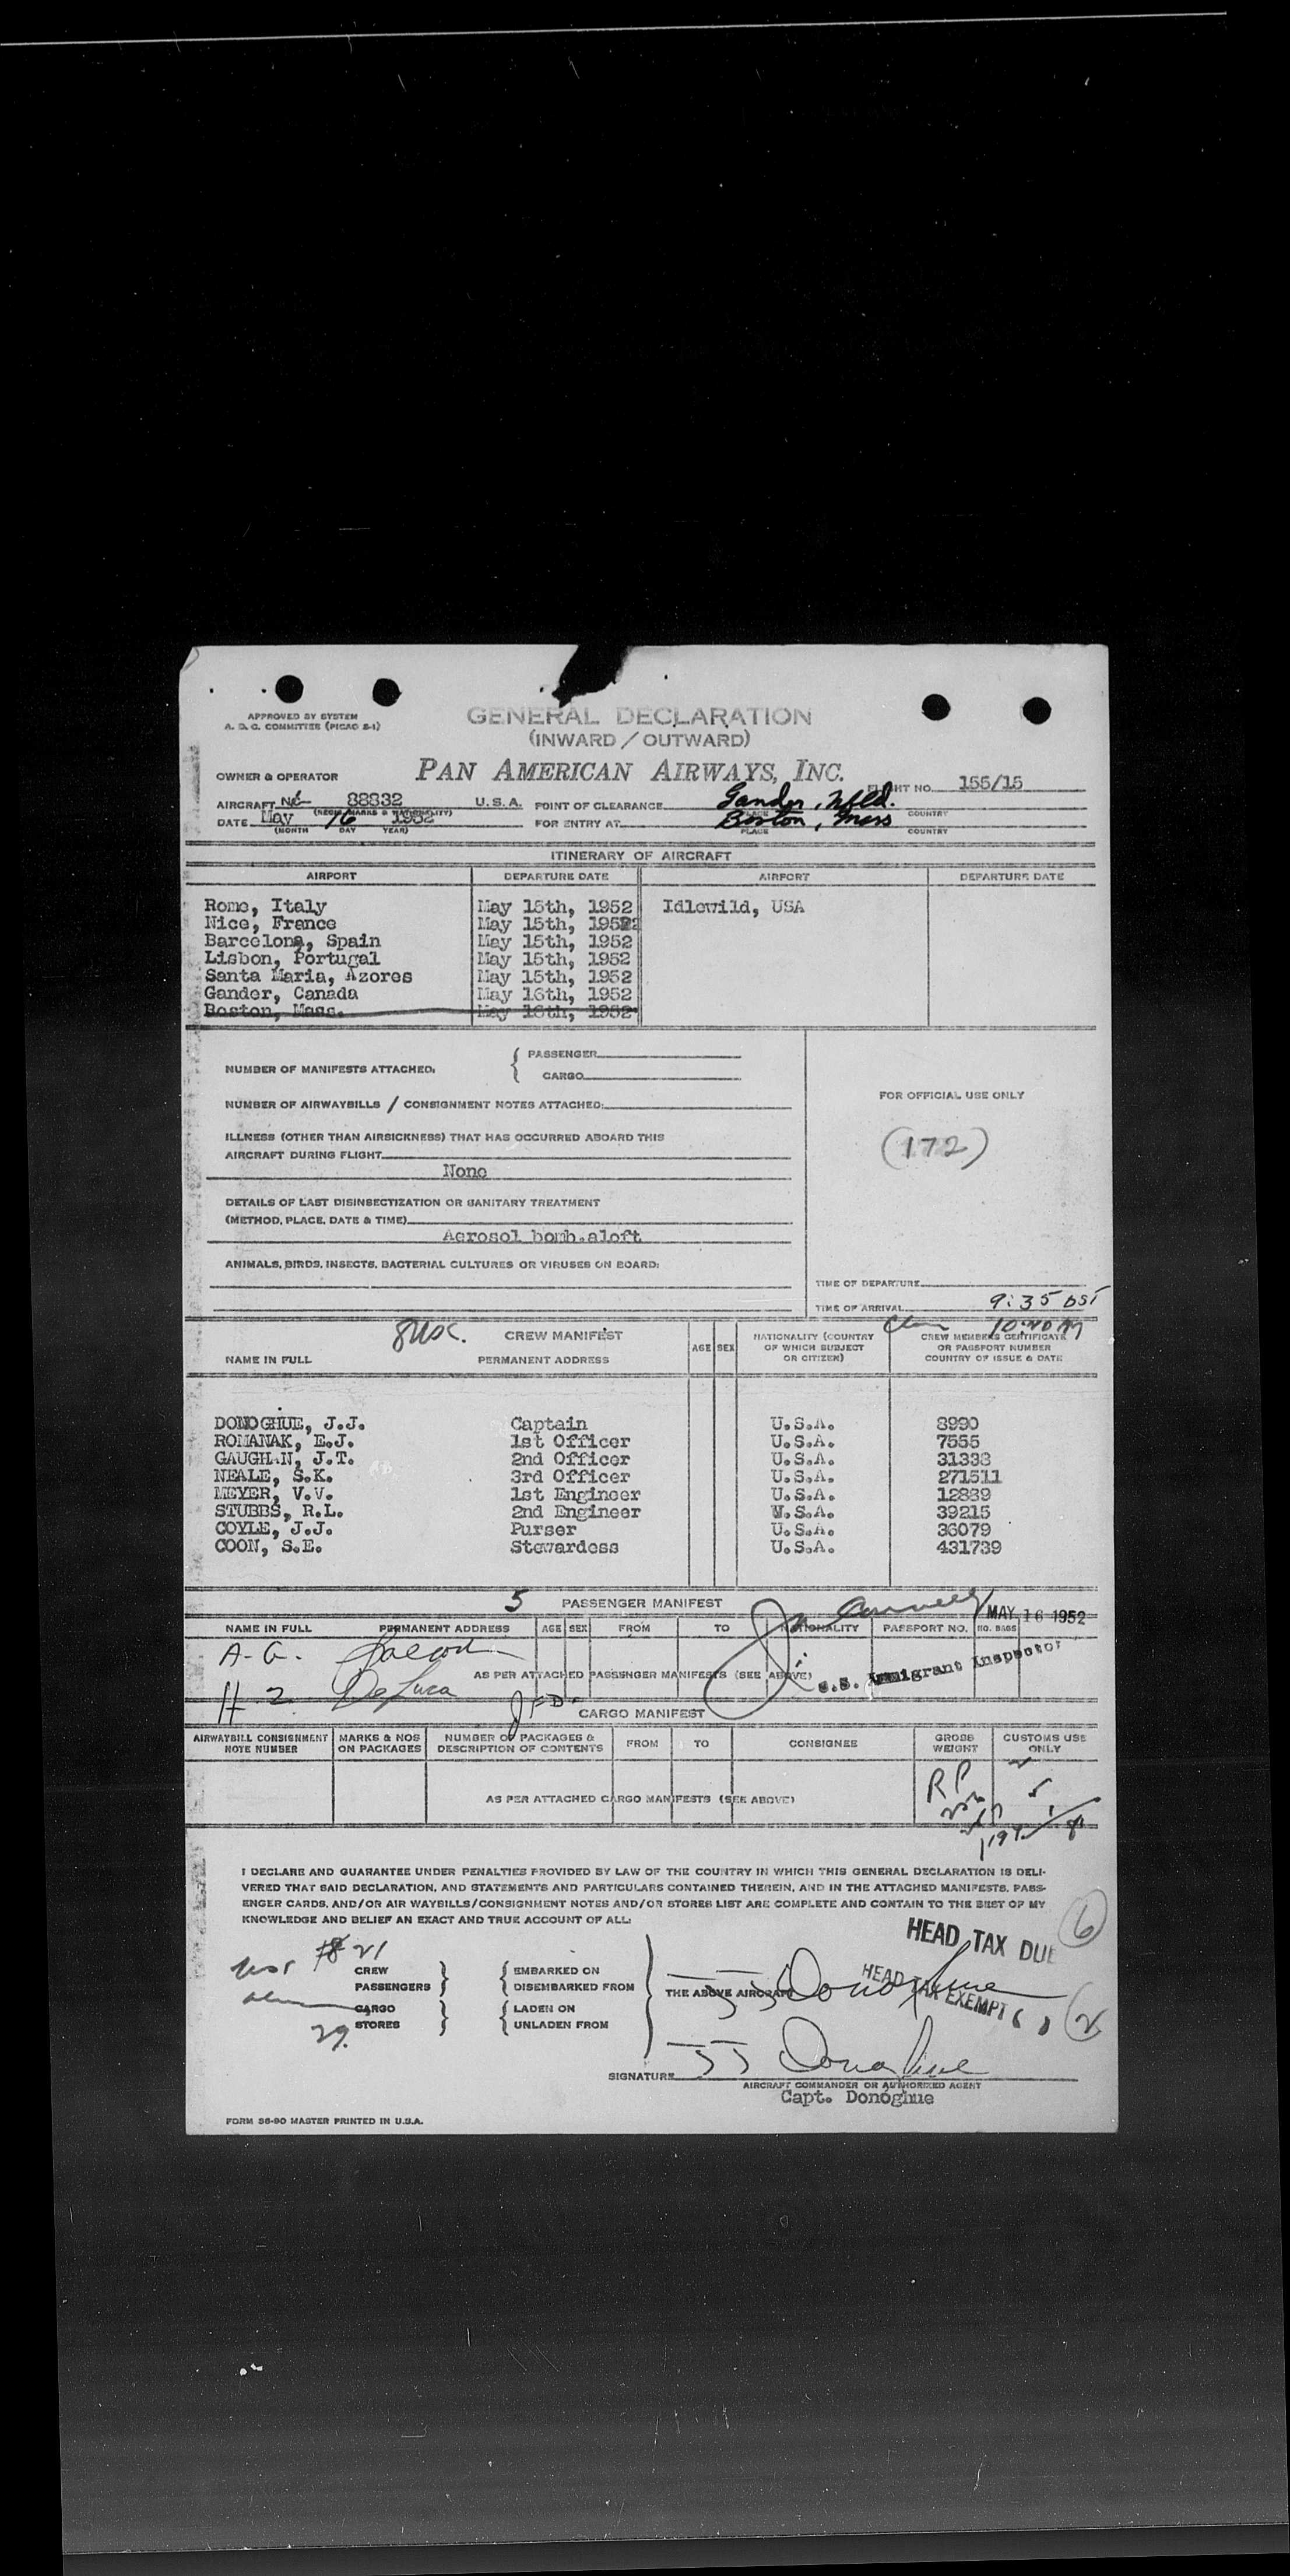 APPROVED BY SYSTEM
A. D. C. COMMITTEE (PICAO 2-1)
GENERAL DECLARATION
(INWARD / OUTWARD)
OWNER & OPERATOR PAN AMERICAN AIRWAYS, INC. FLIGHT NO. 155/15
AIRCRAFT 88832 U. S. A. POINT OF CLEARANCE Gander, Nfld.
(REGIS. MARKS & NATIONALITY) PLACE COUNTRY
DATE May 16 1952 FOR ENTRY AT Boston, Mass
(MONTH DAY YEAR) PLACE COUNTRY
ITINERARY OF AIRCRAFT
AIRPORT DEPARTURE DATE AIRPORT DEPARTURE DATE
Rome, Italy May 15th, 1952 Idlewild, USA
Nice, France May 15th, 1952
Barcelona, Spain May 15th, 1952
Lisbon, Portugal May 15th, 1952
Santa Maria, Azores May 15th, 1952
Gander, Canada May 16th, 1952
Boston, Mass. May 16th, 1952
NUMBER OF MANIFESTS ATTACHED: { PASSENGER
CARGO
NUMBER OF AIRWAYBILLS / CONSIGNMENT NOTES ATTACHED:
FOR OFFICIAL USE ONLY
(172)
ILLNESS (OTHER THAN AIRSICKNESS) THAT HAS OCCURRED ABOARD THIS
AIRCRAFT DURING FLIGHT
None
DETAILS OF LAST DISINSECTIZATION OR SANITARY TREATMENT
(METHOD, PLACE, DATE & TIME)
Aerosol bomb.aloft
ANIMALS, BIRDS, INSECTS, BACTERIAL CULTURES OR VIRUSES ON BOARD:
TIME OF DEPARTURE
TIME OF ARRIVAL 9:35 DST
CREW MANIFEST
NAME IN FULL PERMANENT ADDRESS AGE SEX NATIONALITY (COUNTRY OF WHICH SUBJECT OR CITIZEN) CREW MEMBERS CERTIFICATE OR PASSPORT NUMBER COUNTRY OF ISSUE & DATE
DONOGHUE, J.J. Captain U.S.A. 8990
ROMANAK, E.J. 1st Officer U.S.A. 7555
GAUGHAN, J.T. 2nd Officer U.S.A. 31338
NEALE, S.K. 3rd Officer U.S.A. 271511
MEYER, V.V. 1st Engineer U.S.A. 12889
STUBBS, R.L. 2nd Engineer U.S.A. 39215
COYLE, J.J. Purser U.S.A. 36079
COON, S.E. Stewardess U.S.A. 431739
5 PASSENGER MANIFEST
MAY 16 1952
NAME IN FULL PERMANENT ADDRESS AGE SEX FROM TO NATIONALITY PASSPORT NO. NO. BAGS
A. G.
AS PER ATTACHED PASSENGER MANIFESTS (SEE ABOVE)
U.S. Immigrant Inspector
DeLuca
CARGO MANIFEST
AIRWAYBILL CONSIGNMENT NOTE NUMBER MARKS & NOS ON PACKAGES NUMBER OF PACKAGES & DESCRIPTION OF CONTENTS FROM TO CONSIGNEE GROSS WEIGHT CUSTOMS USE ONLY
RP
AS PER ATTACHED CARGO MANIFESTS (SEE ABOVE)
I DECLARE AND GUARANTEE UNDER PENALTIES PROVIDED BY LAW OF THE COUNTRY IN WHICH THIS GENERAL DECLARATION IS DELI-
VERED THAT SAID DECLARATION, AND STATEMENTS AND PARTICULARS CONTAINED THEREIN, AND IN THE ATTACHED MANIFESTS, PASS-
ENGER CARDS, AND/OR AIR WAYBILLS/CONSIGNMENT NOTES AND/OR STORES LIST ARE COMPLETE AND CONTAIN TO THE BEST OF MY
KNOWLEDGE AND BELIEF AN EXACT AND TRUE ACCOUNT OF ALL:
HEAD TAX DUE 6
21
CREW EMBARKED ON
PASSENGERS DISEMBARKED FROM
THE ABOVE AIRCRAFT JJ Donoghue
HEAD TAX EXEMPT ( ) 2
CARGO LADEN ON
STORES UNLADEN FROM
29
SIGNATURE JJ Donoghue
AIRCRAFT COMMANDER OR AUTHORIZED AGENT
Capt. Donoghue
FORM 36-90 MASTER PRINTED IN U.S.A.